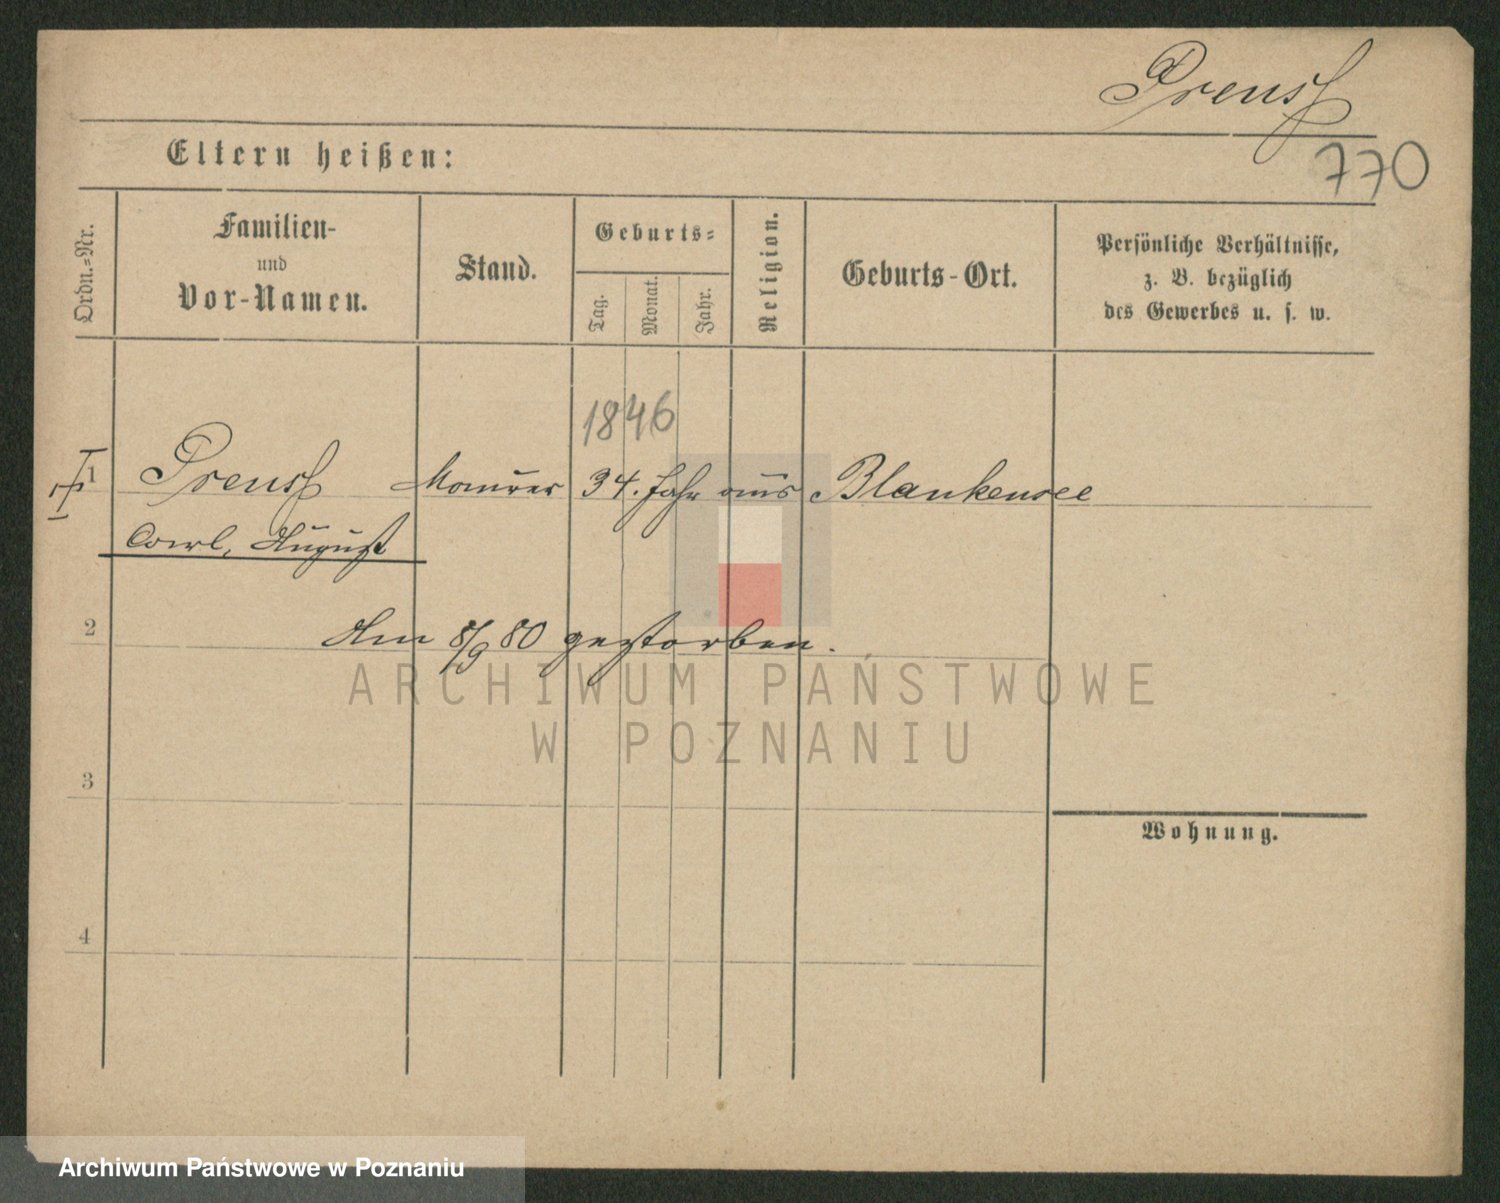 Preuss
770
Eltern heißen:
Ordn.=Nr.
Familien-
und
Vor-Namen.
Stand.
Geburts=
Tag.
Monat.
Jahr.
Religion.
Geburts-Ort.
Persönliche Verhältnisse,
z. B. bezüglich
des Gewerbes u. s. w.
1846
1 Preuss Maurer 34. Jahr aus Blankensee
Carl, August
2
Am 8/9 80 gestorben.
ARCHIWUM PAŃSTWOWE
W POZNANIU
3
Wohnung.
4
Archiwum Państwowe w Poznaniu